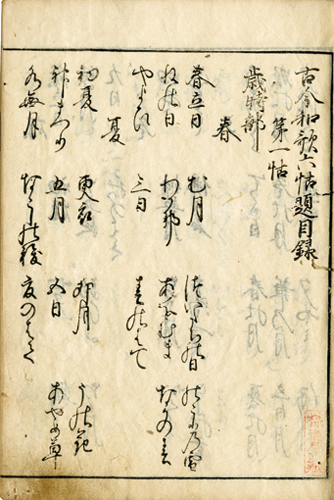 古今和歌六帖題目録
第一帖
歳時部
春
春立日 む月 ついたちの日 のこりの雪
ねの日 わか那 あをむま なかの春
やよひ 三日 春のはて
夏
初夏 更衣 卯月 うの花
神まつり 五月 五日 あやめ草
水無月 なこしの祓 夏のはて